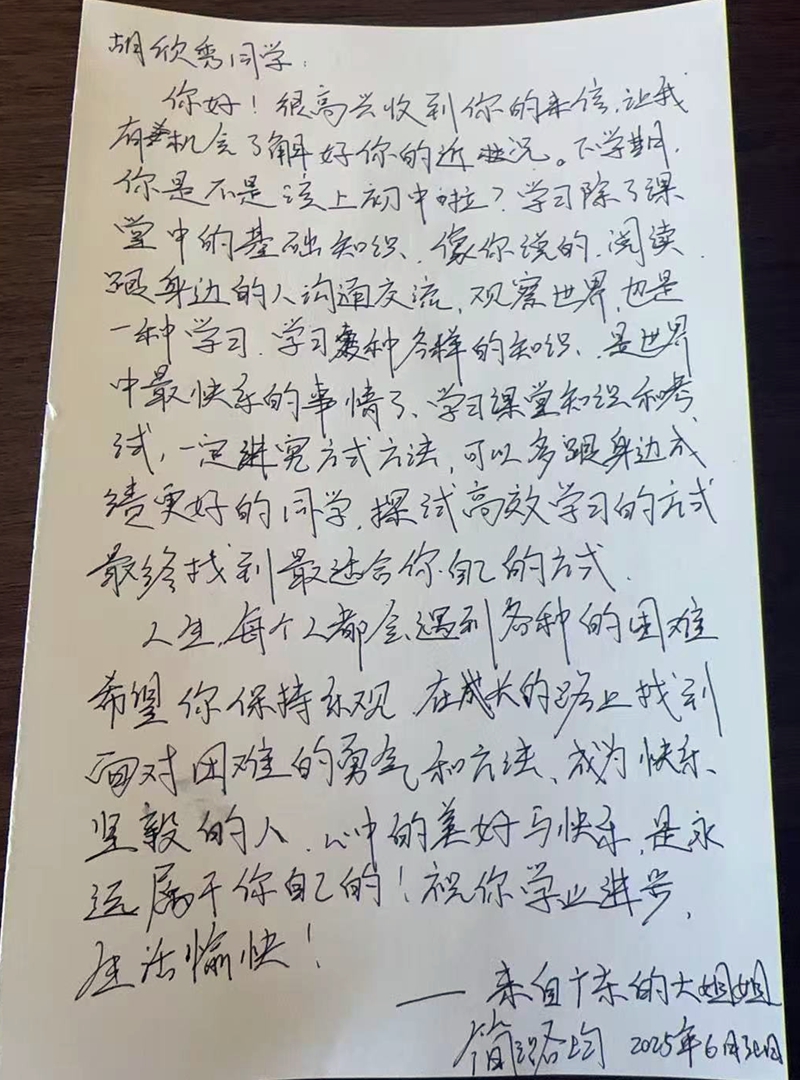 胡欣秀同学:
你好！很高兴收到你的来信，让我
有机会了解好你的近况。下学期，
你是不是该上初中啦？学习除了课
堂中的基础知识、像你说的，阅读、
跟身边的人沟通交流，观察世界，也是
一种学习．学习各种各样的知识、是世界
中最快乐的事情了、学习课堂知识和考
试，一定讲究方式方法，可以多跟身边成
绩更好的同学，探试高效学习的方式
最终找到最适合你自己的方式．
人生，每个人都会遇到各种的困难
希望你保持乐观，在成长的路上找到
面对困难的勇气和方法、成为快乐、
坚毅的人．心中的美好与快乐，是永
远属于你自己的！祝你学业进步，
生活愉快！
——来自广东的大姐姐
简 均 2025年6月30日